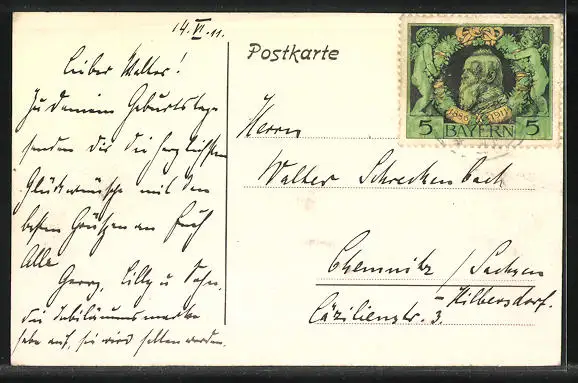 14. VI. 11.
Lieber Walter!
Zu Deinem Geburtstage
senden dir die herzlichsten
Glückwünsche mit den
besten Grüßen an Euch
Alle
Georg, Lilly u. Sohn.
die Jubiläumsmarke
hebe auf, sie wird selten werden.
Postkarte
Herrn
Walter Schreckenbach
Chemnitz / Sachsen
- Hilbersdorf.
Cäzilienstr. 3.
1886 1911
5 BAYERN 5